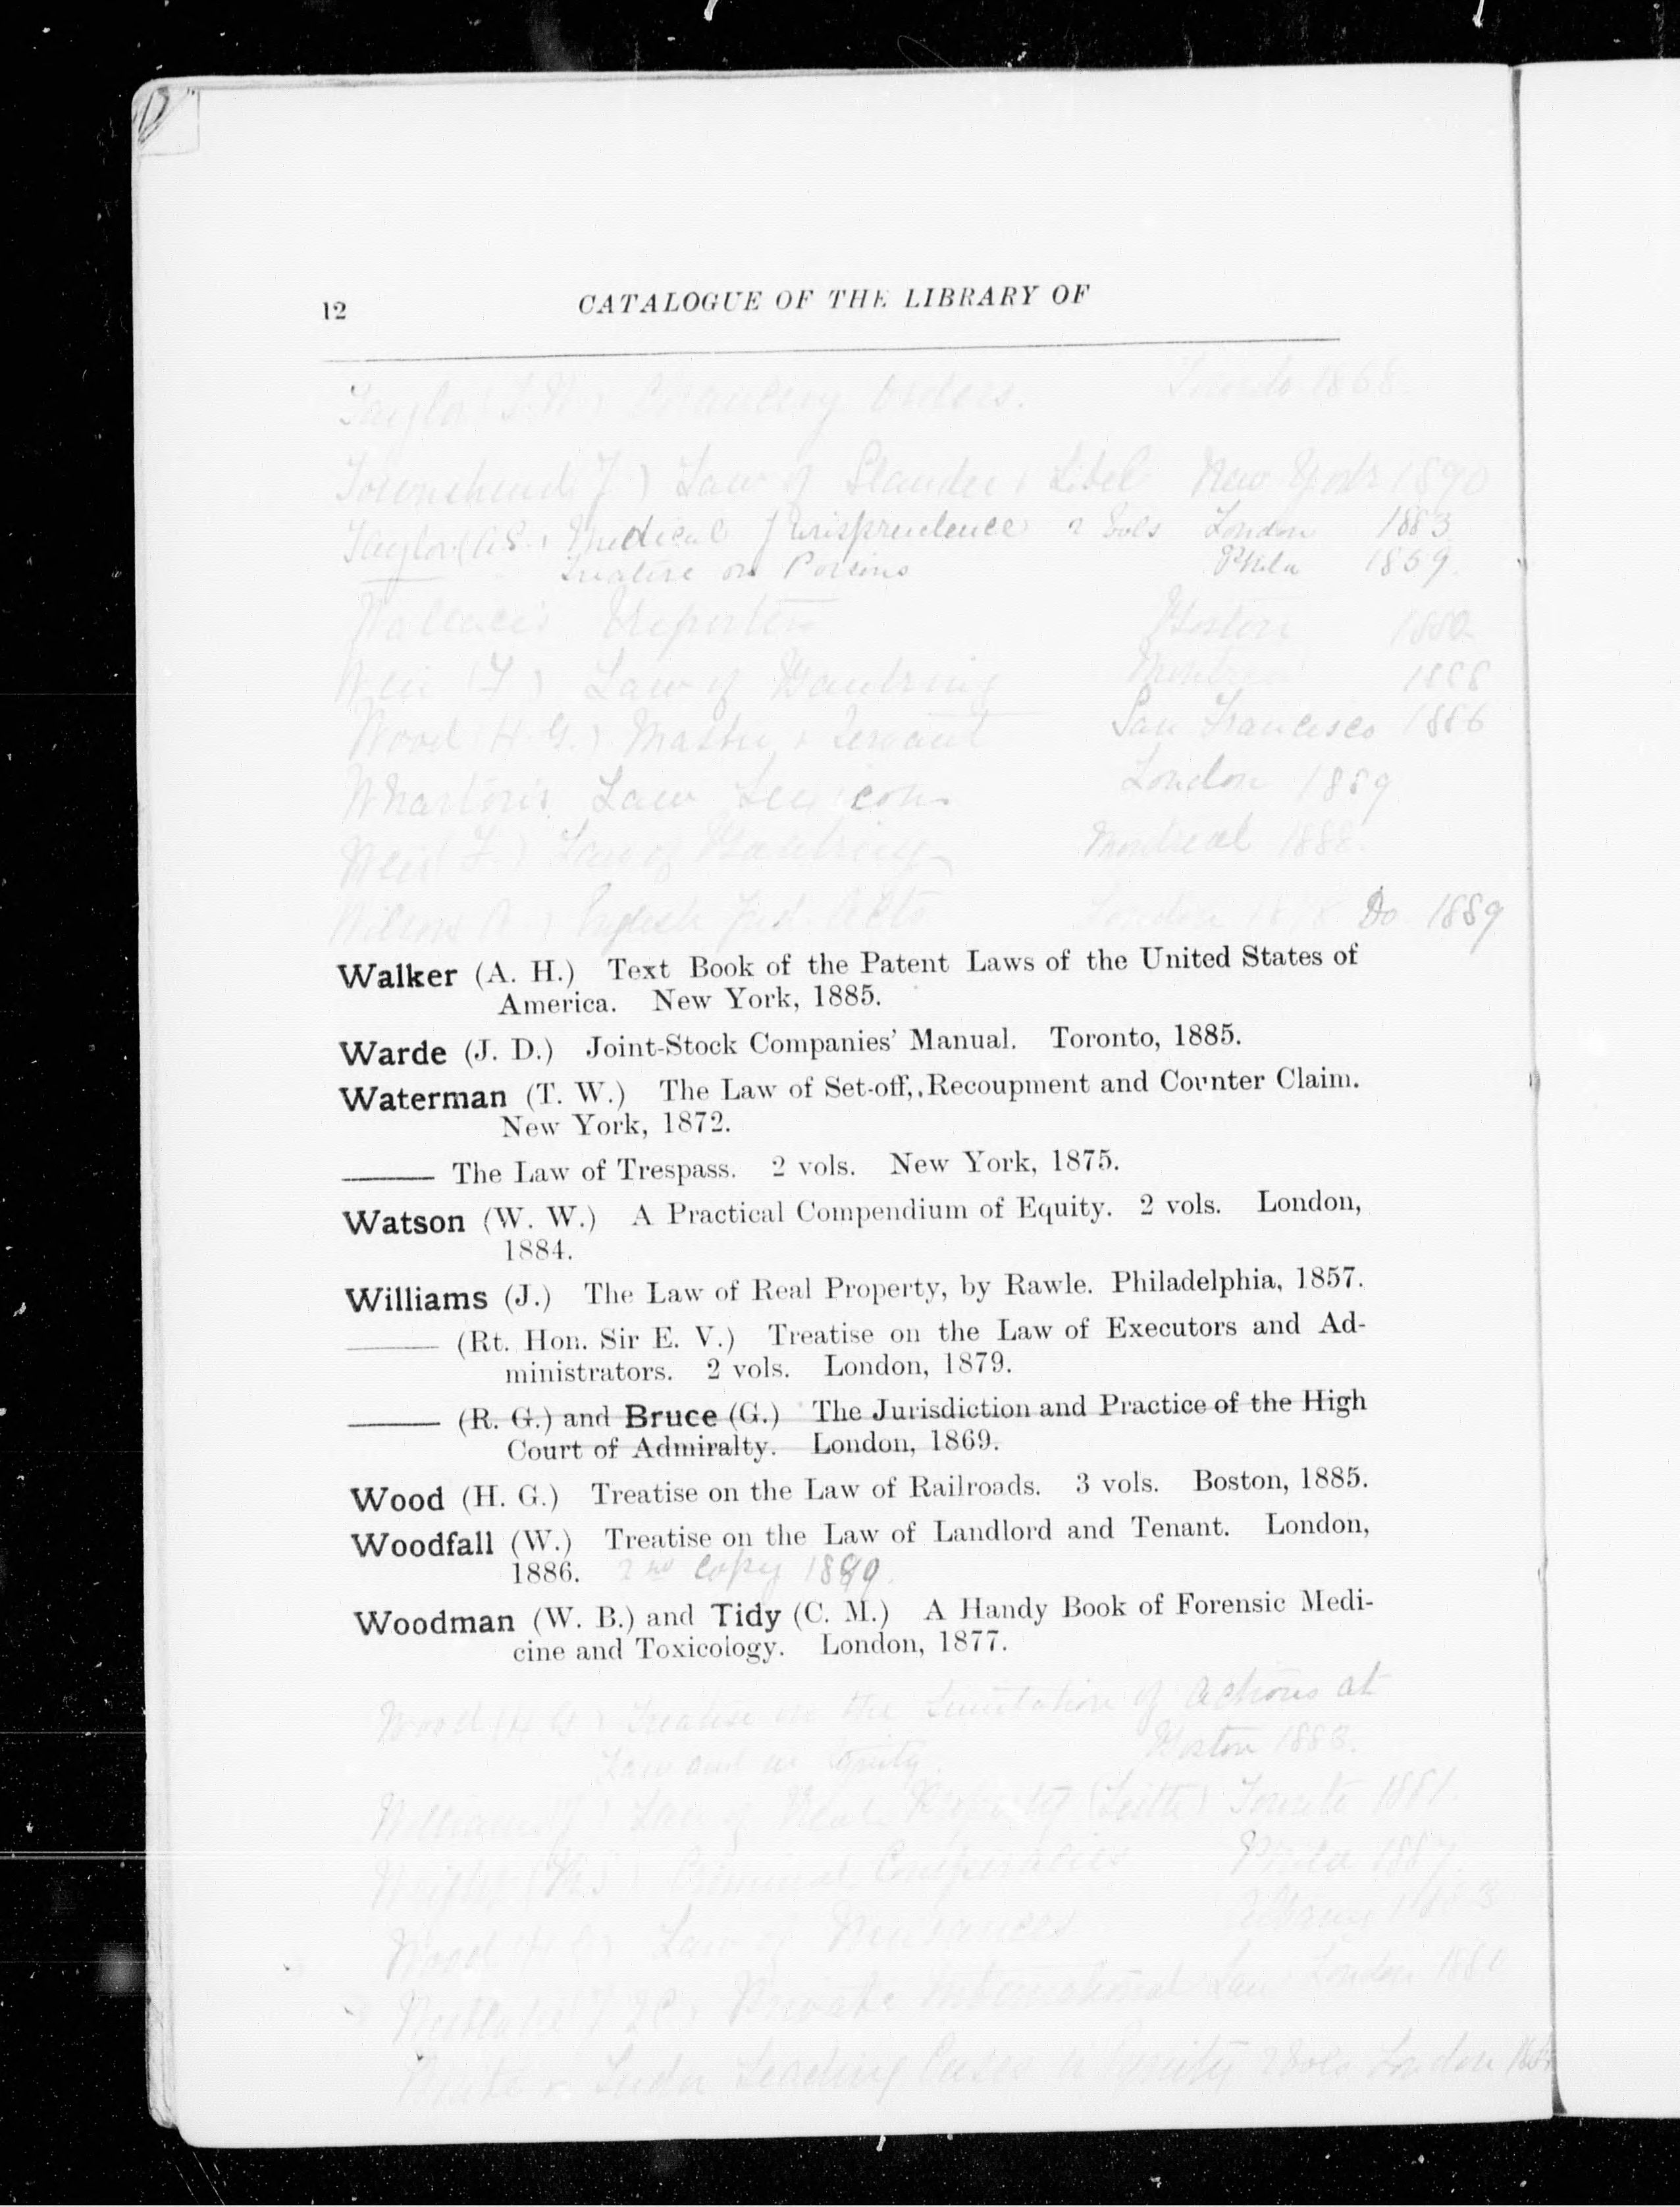 12
CATALOGUE OF THE LIBRARY OF
Taylor Chancery Orders. Toronto 1868.
Townshend J) Law of Slander & Libel New York 1890
Taylor (A.S. Medical Jurisprudence 2 Vols London 1883
Treatise on Poisons Phila 1859.
Wallace's Reporters Boston 1882
Weir (F) Law of Banking Montreal 1888
Wood H.G.) Master & Servant San Francisco 1886
Wharton's Law Lexicon London 1889
Weir F.) Law of Banking Montreal 1888.
Wilson English Jud. Acts London 1878 Do 1889
Walker (A. H.) Text Book of the Patent Laws of the United States of
America. New York, 1885.
Warde (J. D.) Joint-Stock Companies' Manual. Toronto, 1885.
Waterman (T. W.) The Law of Set-off, Recoupment and Counter Claim.
New York, 1872.
——— The Law of Trespass. 2 vols. New York, 1875.
Watson (W. W.) A Practical Compendium of Equity. 2 vols. London,
1884.
Williams (J.) The Law of Real Property, by Rawle. Philadelphia, 1857.
——— (Rt. Hon. Sir E. V.) Treatise on the Law of Executors and Ad-
ministrators. 2 vols. London, 1879.
——— (R. G.) and Bruce (G.) The Jurisdiction and Practice of the High
Court of Admiralty. London, 1869.
Wood (H. G.) Treatise on the Law of Railroads. 3 vols. Boston, 1885.
Woodfall (W.) Treatise on the Law of Landlord and Tenant. London,
1886. 2nd Copy 1889.
Woodman (W. B.) and Tidy (C. M.) A Handy Book of Forensic Medi-
cine and Toxicology. London, 1877.
Wood (H G) Treatise on the Limitation of Actions at
Law and in Equity. Boston 1883.
Williams J) Law of Real Property (Leith) Toronto 1881.
Wright Criminal Conspiracies Phila 1887.
Wood H.G. Law of Nuisances Albany 1883
Westlake J Q.C. Private International Law London 1880
White & Tudor Leading Cases in Equity 2 Vols London